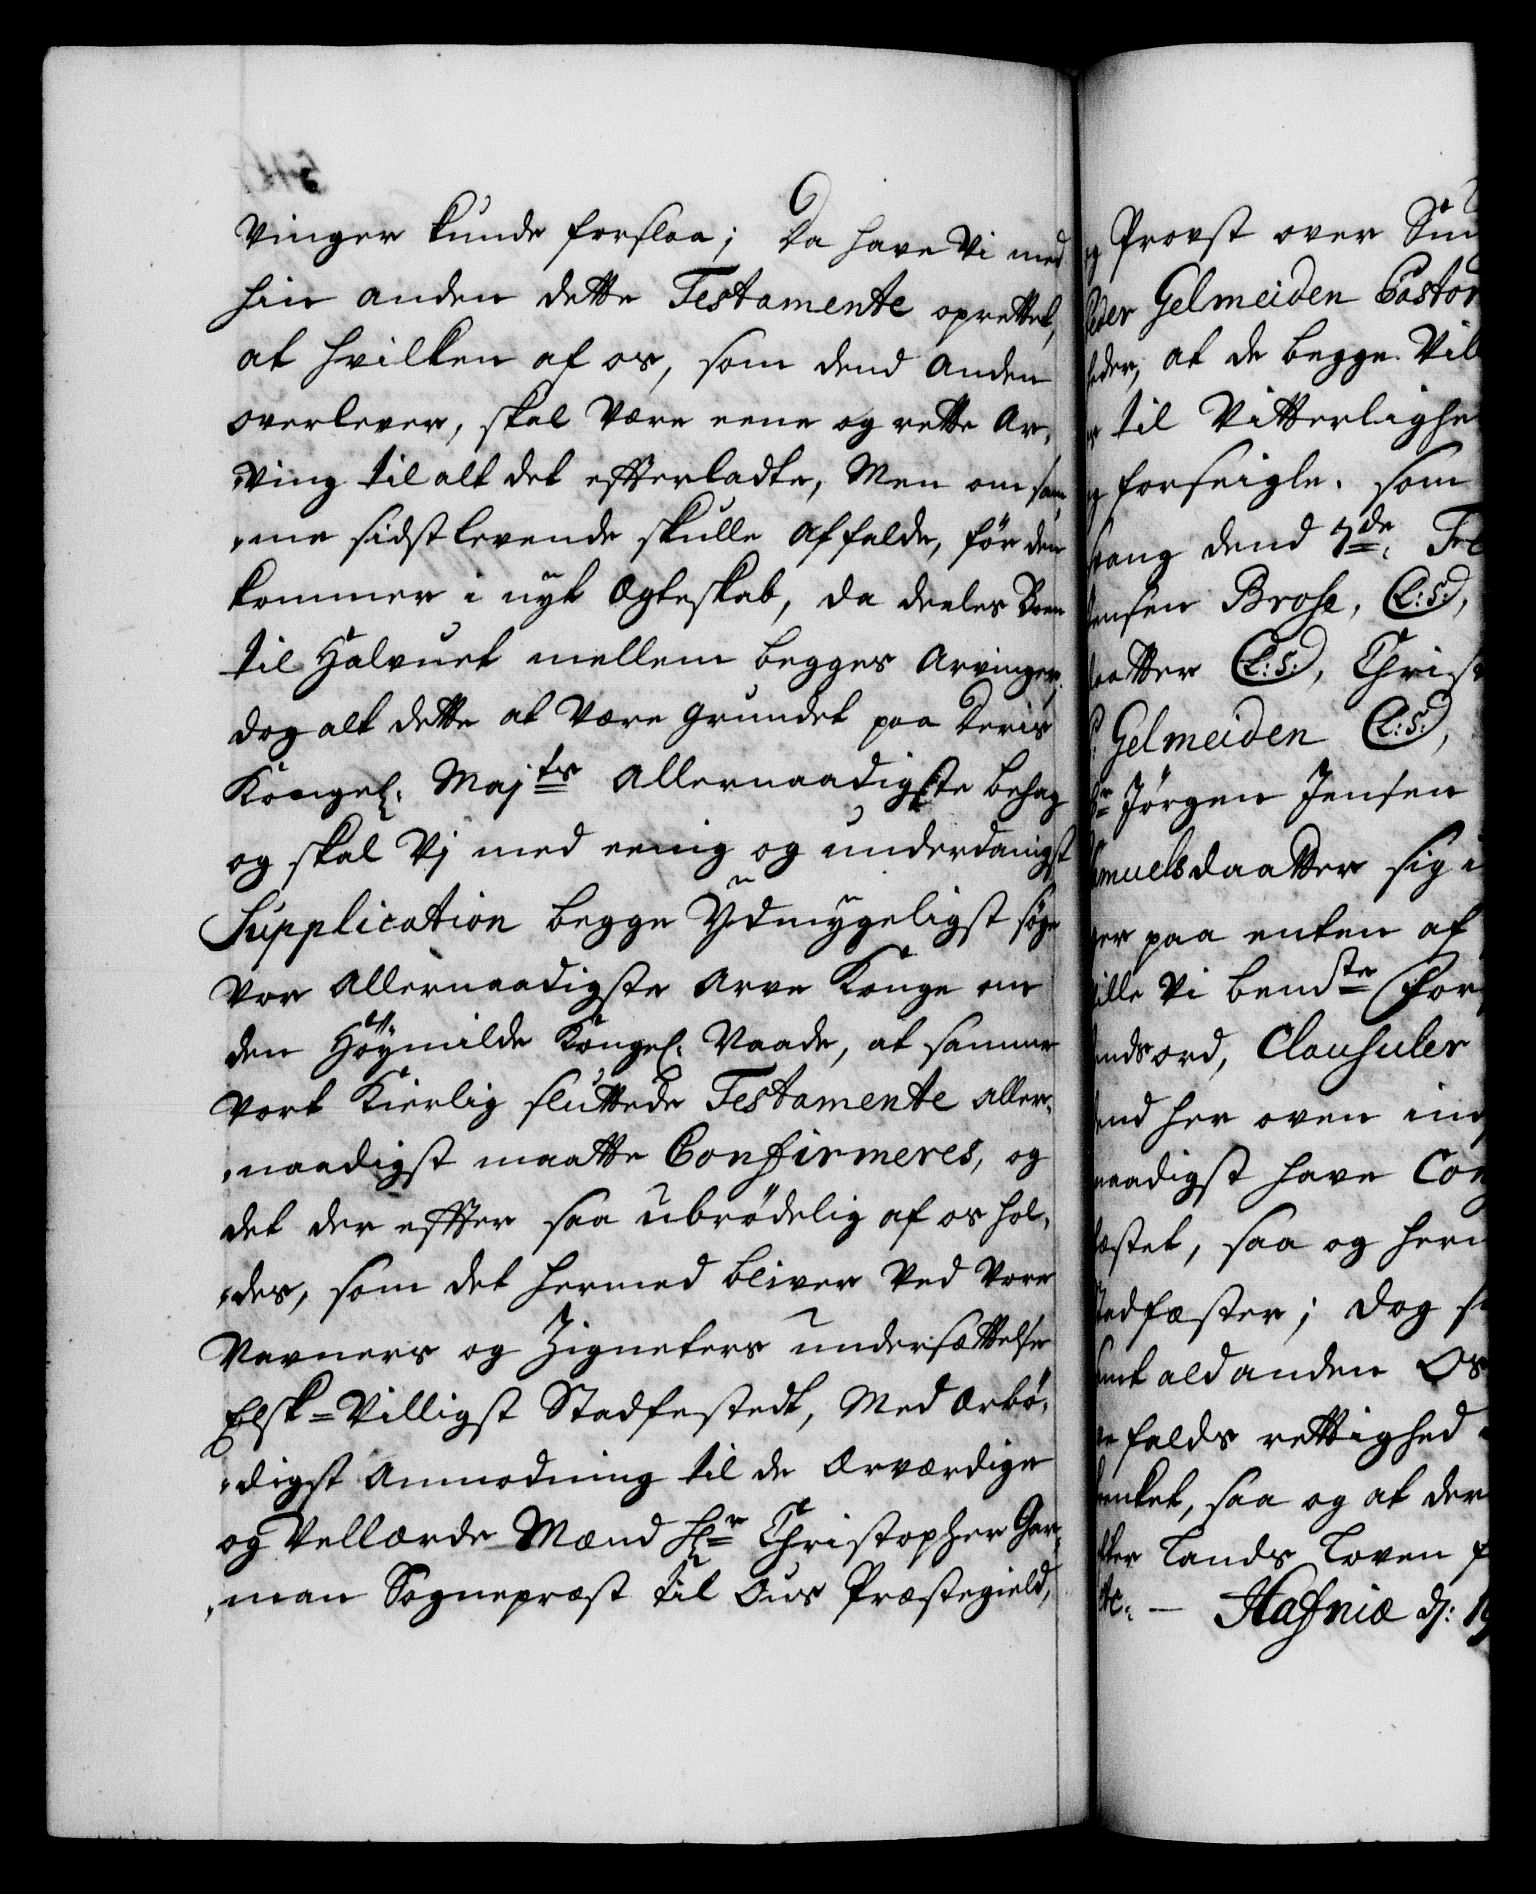 vinger kunde forslaa; Da have Vi med
hin anden dette Testamente oprettet,
at hvilken af os, som dend anden
overlever, skal være eene og rette Ar„
„ving til alt det efterladte, Men om sam„
„me sidstlevende skulle affalde, før den
kommer i nyt Ægteskab, da deeles Boen
til Halvuet mellem begges Arvinger.
dog alt dette at være grundet paa Deris
Kongel: Majts allernaadigste behag
og skal Vj med eenig og underdanigst
Supplication begge Ydmygeligst søge
vor allernaadigste Arve Konge om
den Høymilde Kongel: Naade, at samme
vort Kierlig sluttede Testamente aller„
„naadigst maatte Confirmeres, og
det der effter saa ubrødelig af os hol„
„des, som det hermed bliver ved vore
Navners og Zigneters undersættelse
Elsk=Villigst Stadfestedt, Med ærbø„
„digst anmodning til de Ærværdige
og Vellærde Mænd Hr Christopher Gar„
„man Sognepræst til Ous Præstegield,
og Provst over Sun
Peder Gelmeiden Pastor
steder, at de begge Vil
til Vitterlighe
og forseigle. som
dend 7de Fe
Jensen Brose, (L:S:),
daatter (L:S:), Christ
Gelmeiden (L:S:),
Hr Jørgen Jensen
Samuelsdaatter sig i
er paa enten af
ville Vi bemte For
ends ord, Clausuler
end her oven ind
naadigst have Con
fæstet, saa og herm
Stadfæster; dog s
uet ald anden Os
falds rettighed
tænket, saa og at der
effter Lands Loven f
etc: — Hafniæ d: 19